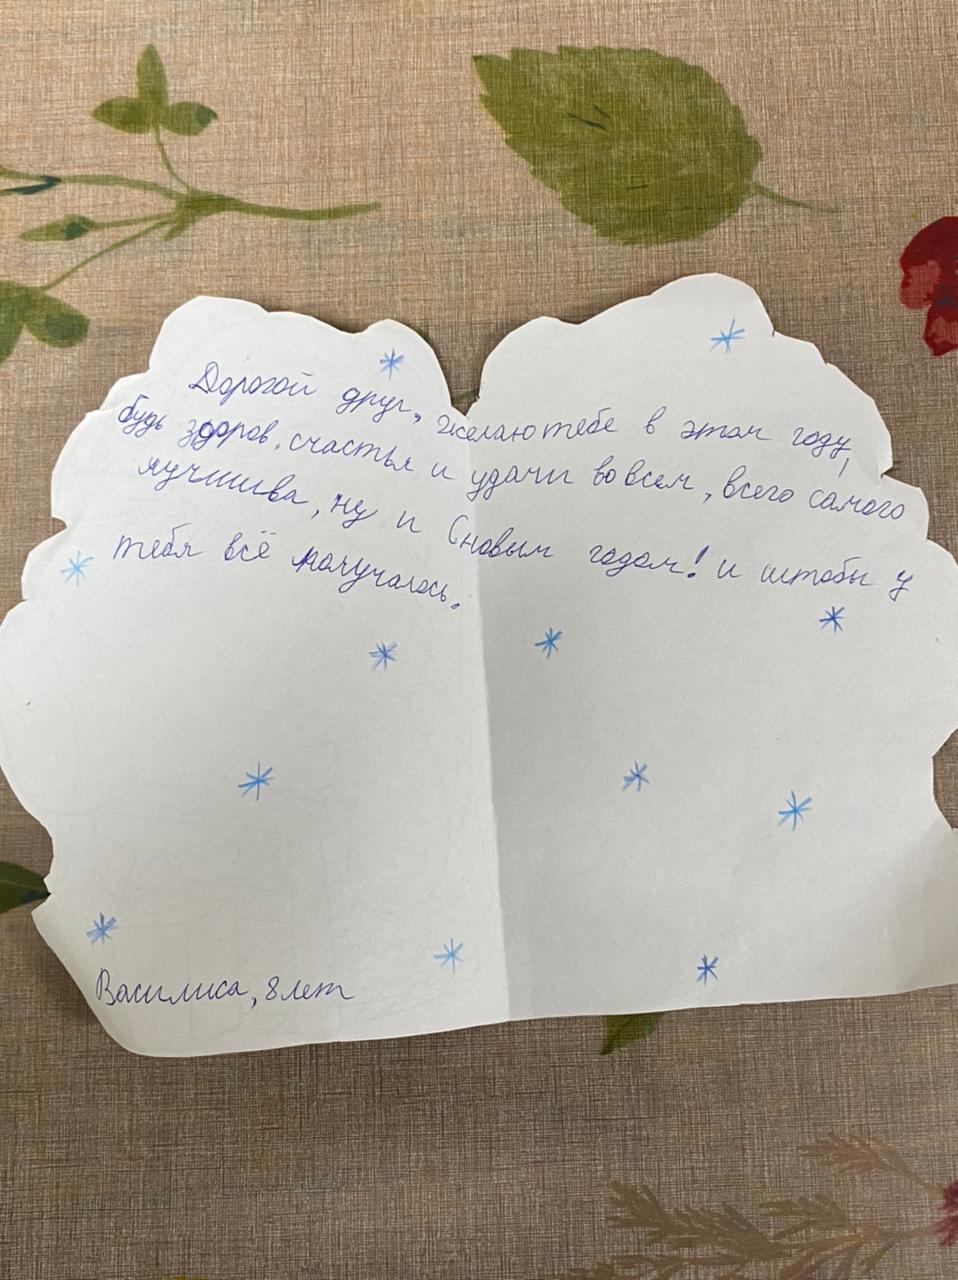 Дорогой друг, желаю тебе в этом году,
будь здоров, счастья и удачи во всем, всего самого
лучшива, ну и Сновым годом! и штобы у
тебя всё получалось.
Василиса, 8 лет